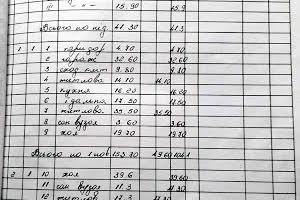 15.90 15.9
Всього по під. 41.30 41.3
1 1 1 коридор 4.80 4.80
2 гараж 32.60 32.60
3 сход. кліт 9.80 9.80
4 житлова 14.10 14.10
5 кухня 16.20 16.20
6 їдальня 17.50 17.50
7 житлова 35.50 35.50
8 сан вузол 3.60 3.60
9 хол 19.70 19.70
Всього по 1 пов. 153.80 49.60 104.1
2 1 10 хол 39.6 39.60
11 сан вузол 11.3 11.30
12 житлова 17.3